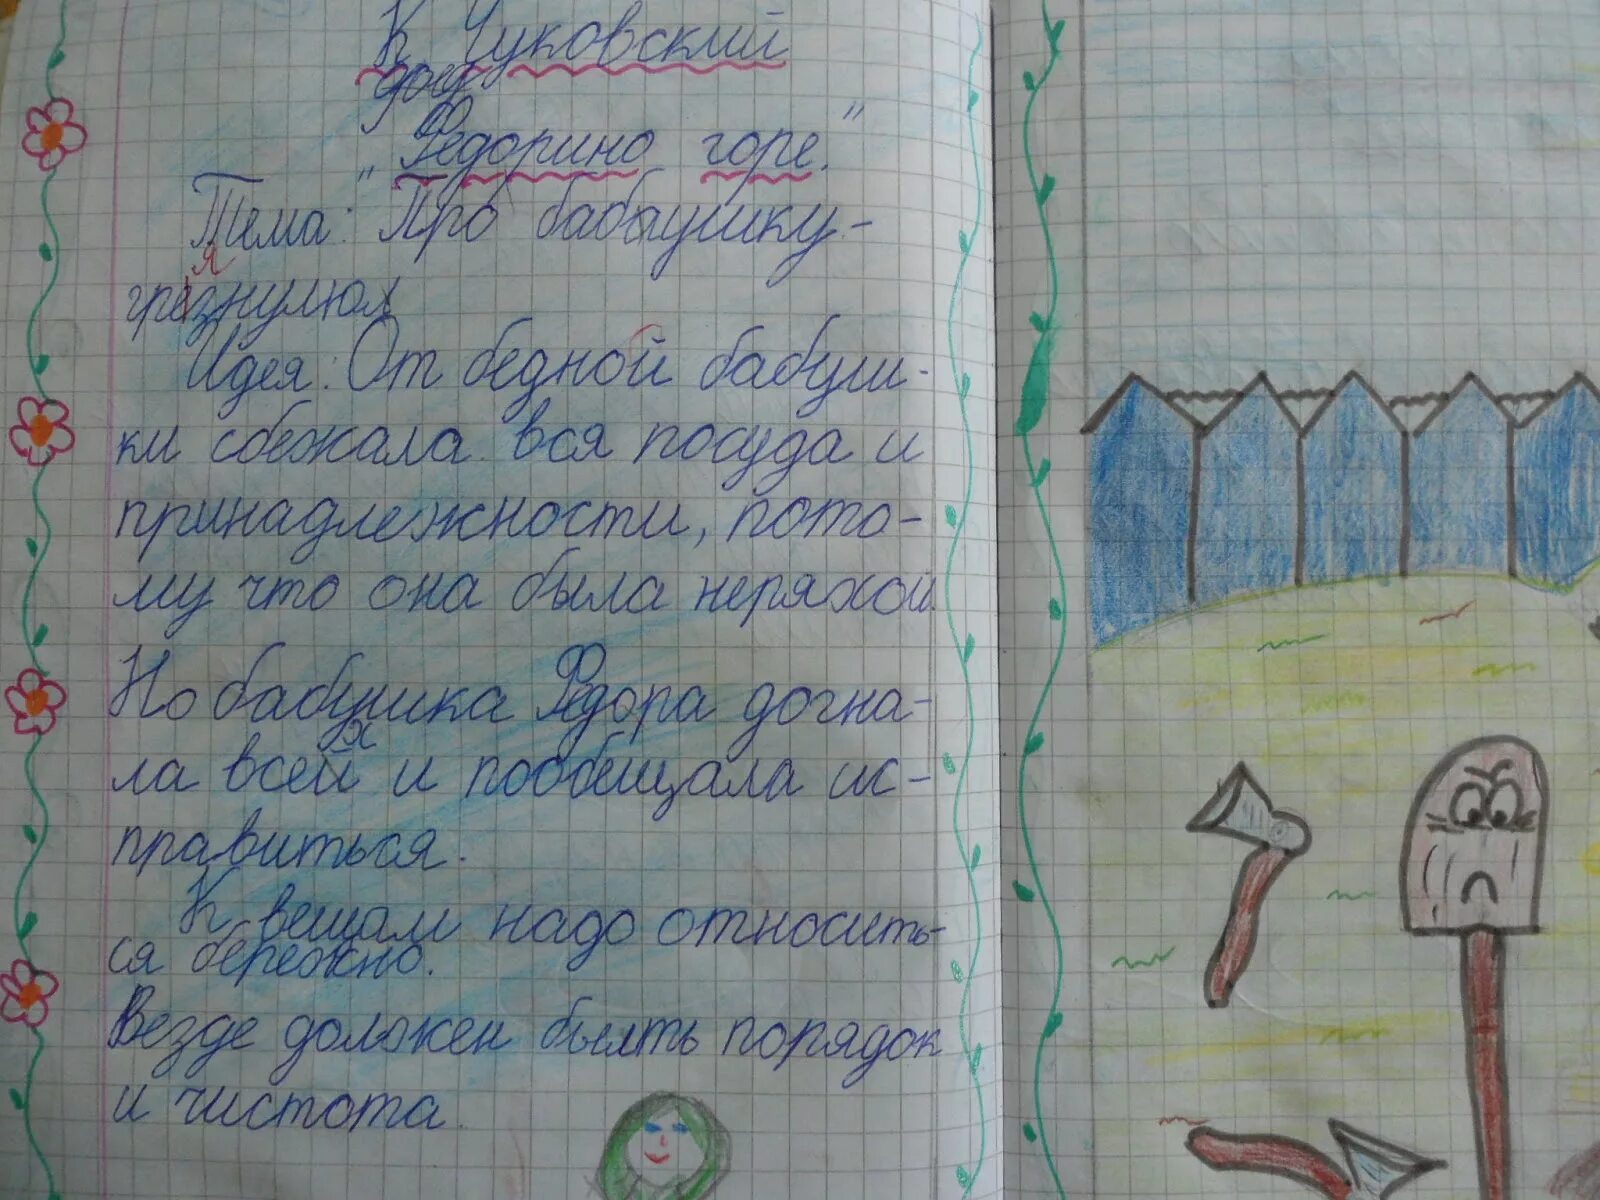 К Чуковский
"Федорино горе."
Тема: Про бабушку-
грязнулю
Идея: От бедной бабуш-
ки сбежала вся посуда и
принадлежности, пото-
му что она была неряхой
Но бабушка Федора догна-
ла всех и пообещала ис-
правиться.
К вещам надо относить-
ся бережно.
Везде должен быть порядок
и чистота.